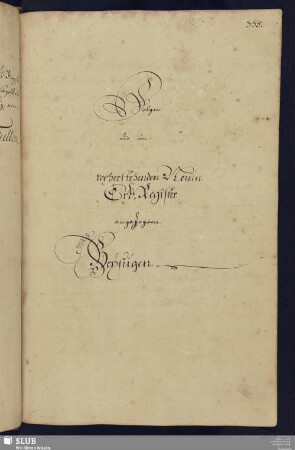 338.
Folgen
die im
vorherstehenden Neuen
Erb-Register
angezogene
Beyfugen.
SLUB
Wir führen Wissen.